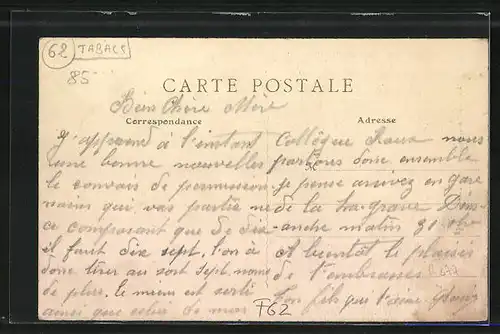 62 TABACS
85
CARTE POSTALE
Bien Chère Mère
Correspondance
Adresse
J'apprend à l'instant
une bonne nouvelles
le convois de permission
naires qui vas partir ne
ce composant que de dix
il faut dix sept. l'on à
donc tirer au sort sept noms
de plus. le mien est sorti
ainsi que celui de mon
Collègue Roux nous
partons donc ensemble
je pense arrivez en gare
de la Grave Dim-
anche matin 31
et bientôt le plaisir
de t'embrasser
Ton fils qui t'aime
P62